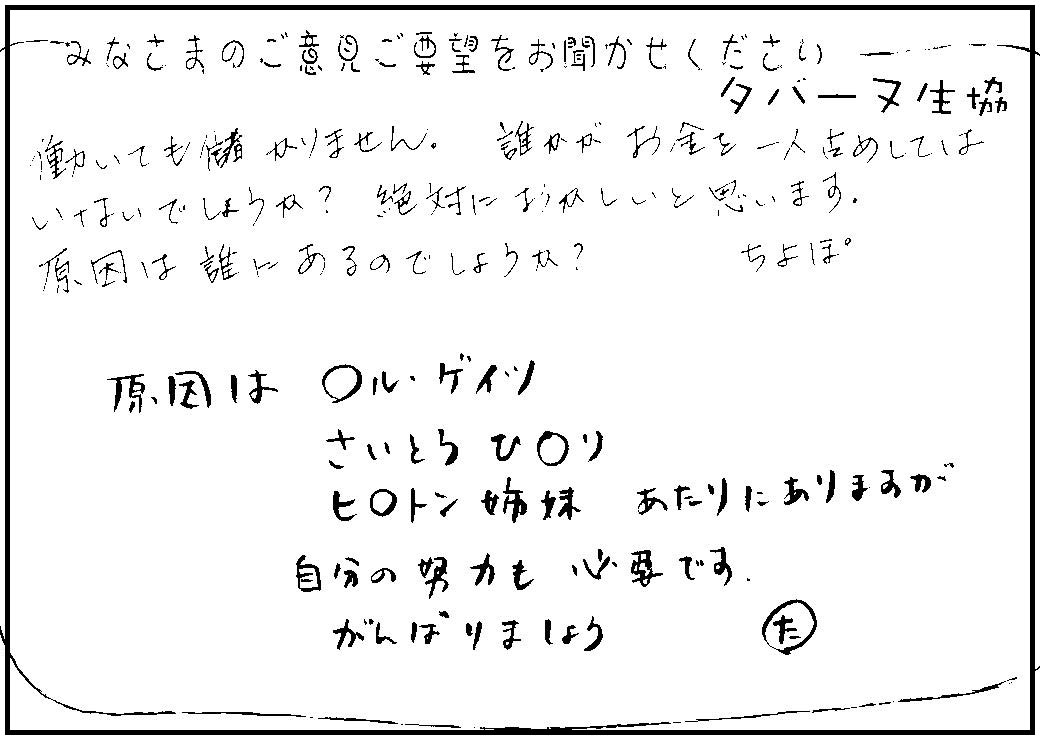 みなさまのご意見ご要望をお聞かせください
タバーヌ生協
働いても儲かりません。 誰かがお金を一人占めしては
いないでしょうか? 絶対におかしいと思います。
原因は誰にあるのでしょうか? ちよぽ
原因は 〇ル・ゲイツ
さいとうひ〇り
ヒ〇トン姉妹 あたりにありますが
自分の努力も必要です.
がんばりましょう た